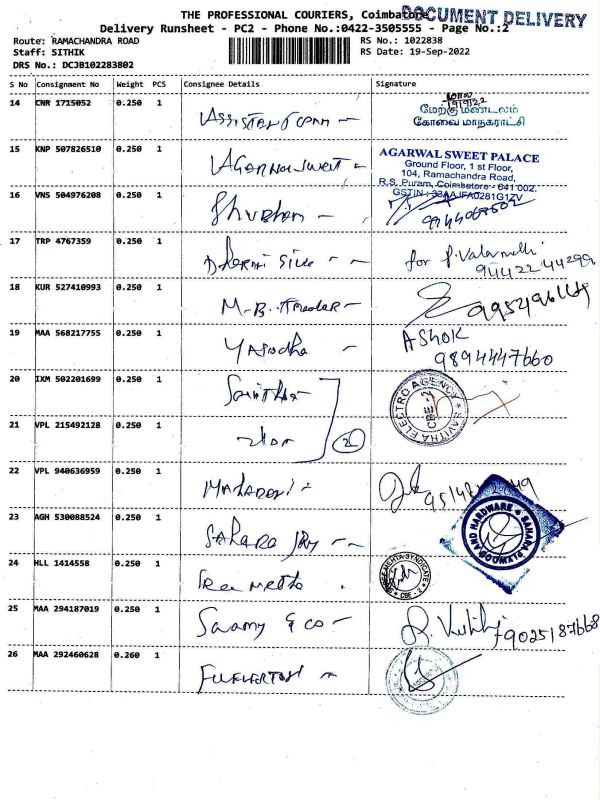 THE PROFESSIONAL COURIERS, Coimbatore
DOCUMENT DELIVERY
Delivery Runsheet - PC2 - Phone No.:0422-3505555 - Page No.:2
Route: RAMACHANDRA ROAD
RS No.: 1022838
Staff: SITHIK
RS Date: 19-Sep-2022
DRS No.: DCJB102283802
S No Consignment No Weight PCS Consignee Details Signature
14 CNR 1715052 0.250 1
19/9/22
மேற்கு மண்டலம்
கோவை மாநகராட்சி
15 KNP 507826510 0.250 1 Agarwal Sweet
AGARWAL SWEET PALACE
Ground Floor, 1 st Floor,
104, Ramachandra Road,
R.S. Puram, Coimbatore - 641 002.
GSTIN : 33AAJFA0281G1ZV
16 VNS 504976208 0.250 1
17 TRP 4767359 0.250 1
for P. Valarmathi
94422 44299
18 KUR 527410993 0.250 1 M.B.
19 MAA 568217755 0.250 1 Yasodha
ASHOK
9894447660
20 IXM 502201699 0.250 1 Savitha
SAVITHA ELECTRO AGENCY
CBE - 2
21 VPL 215492128 0.250 1
2
22 VPL 940636959 0.250 1
23 AGH 530088524 0.250 1 Sahara
HARDWARE SAHARA
24 HLL 1414558 0.250 1 Sree Metha
MEHTA SYNDICATE
CBE - 2
25 MAA 294187019 0.250 1 Swamy & Co
7902518 7668
26 MAA 292460628 0.260 1 Fullerton